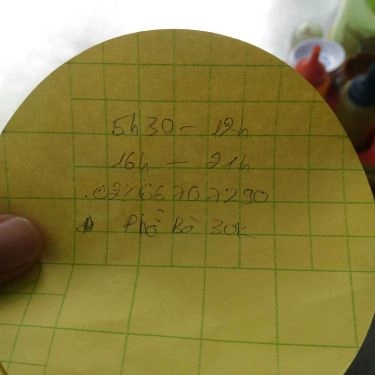 5h30 - 12h
16h - 21h
Phở Bò 30K